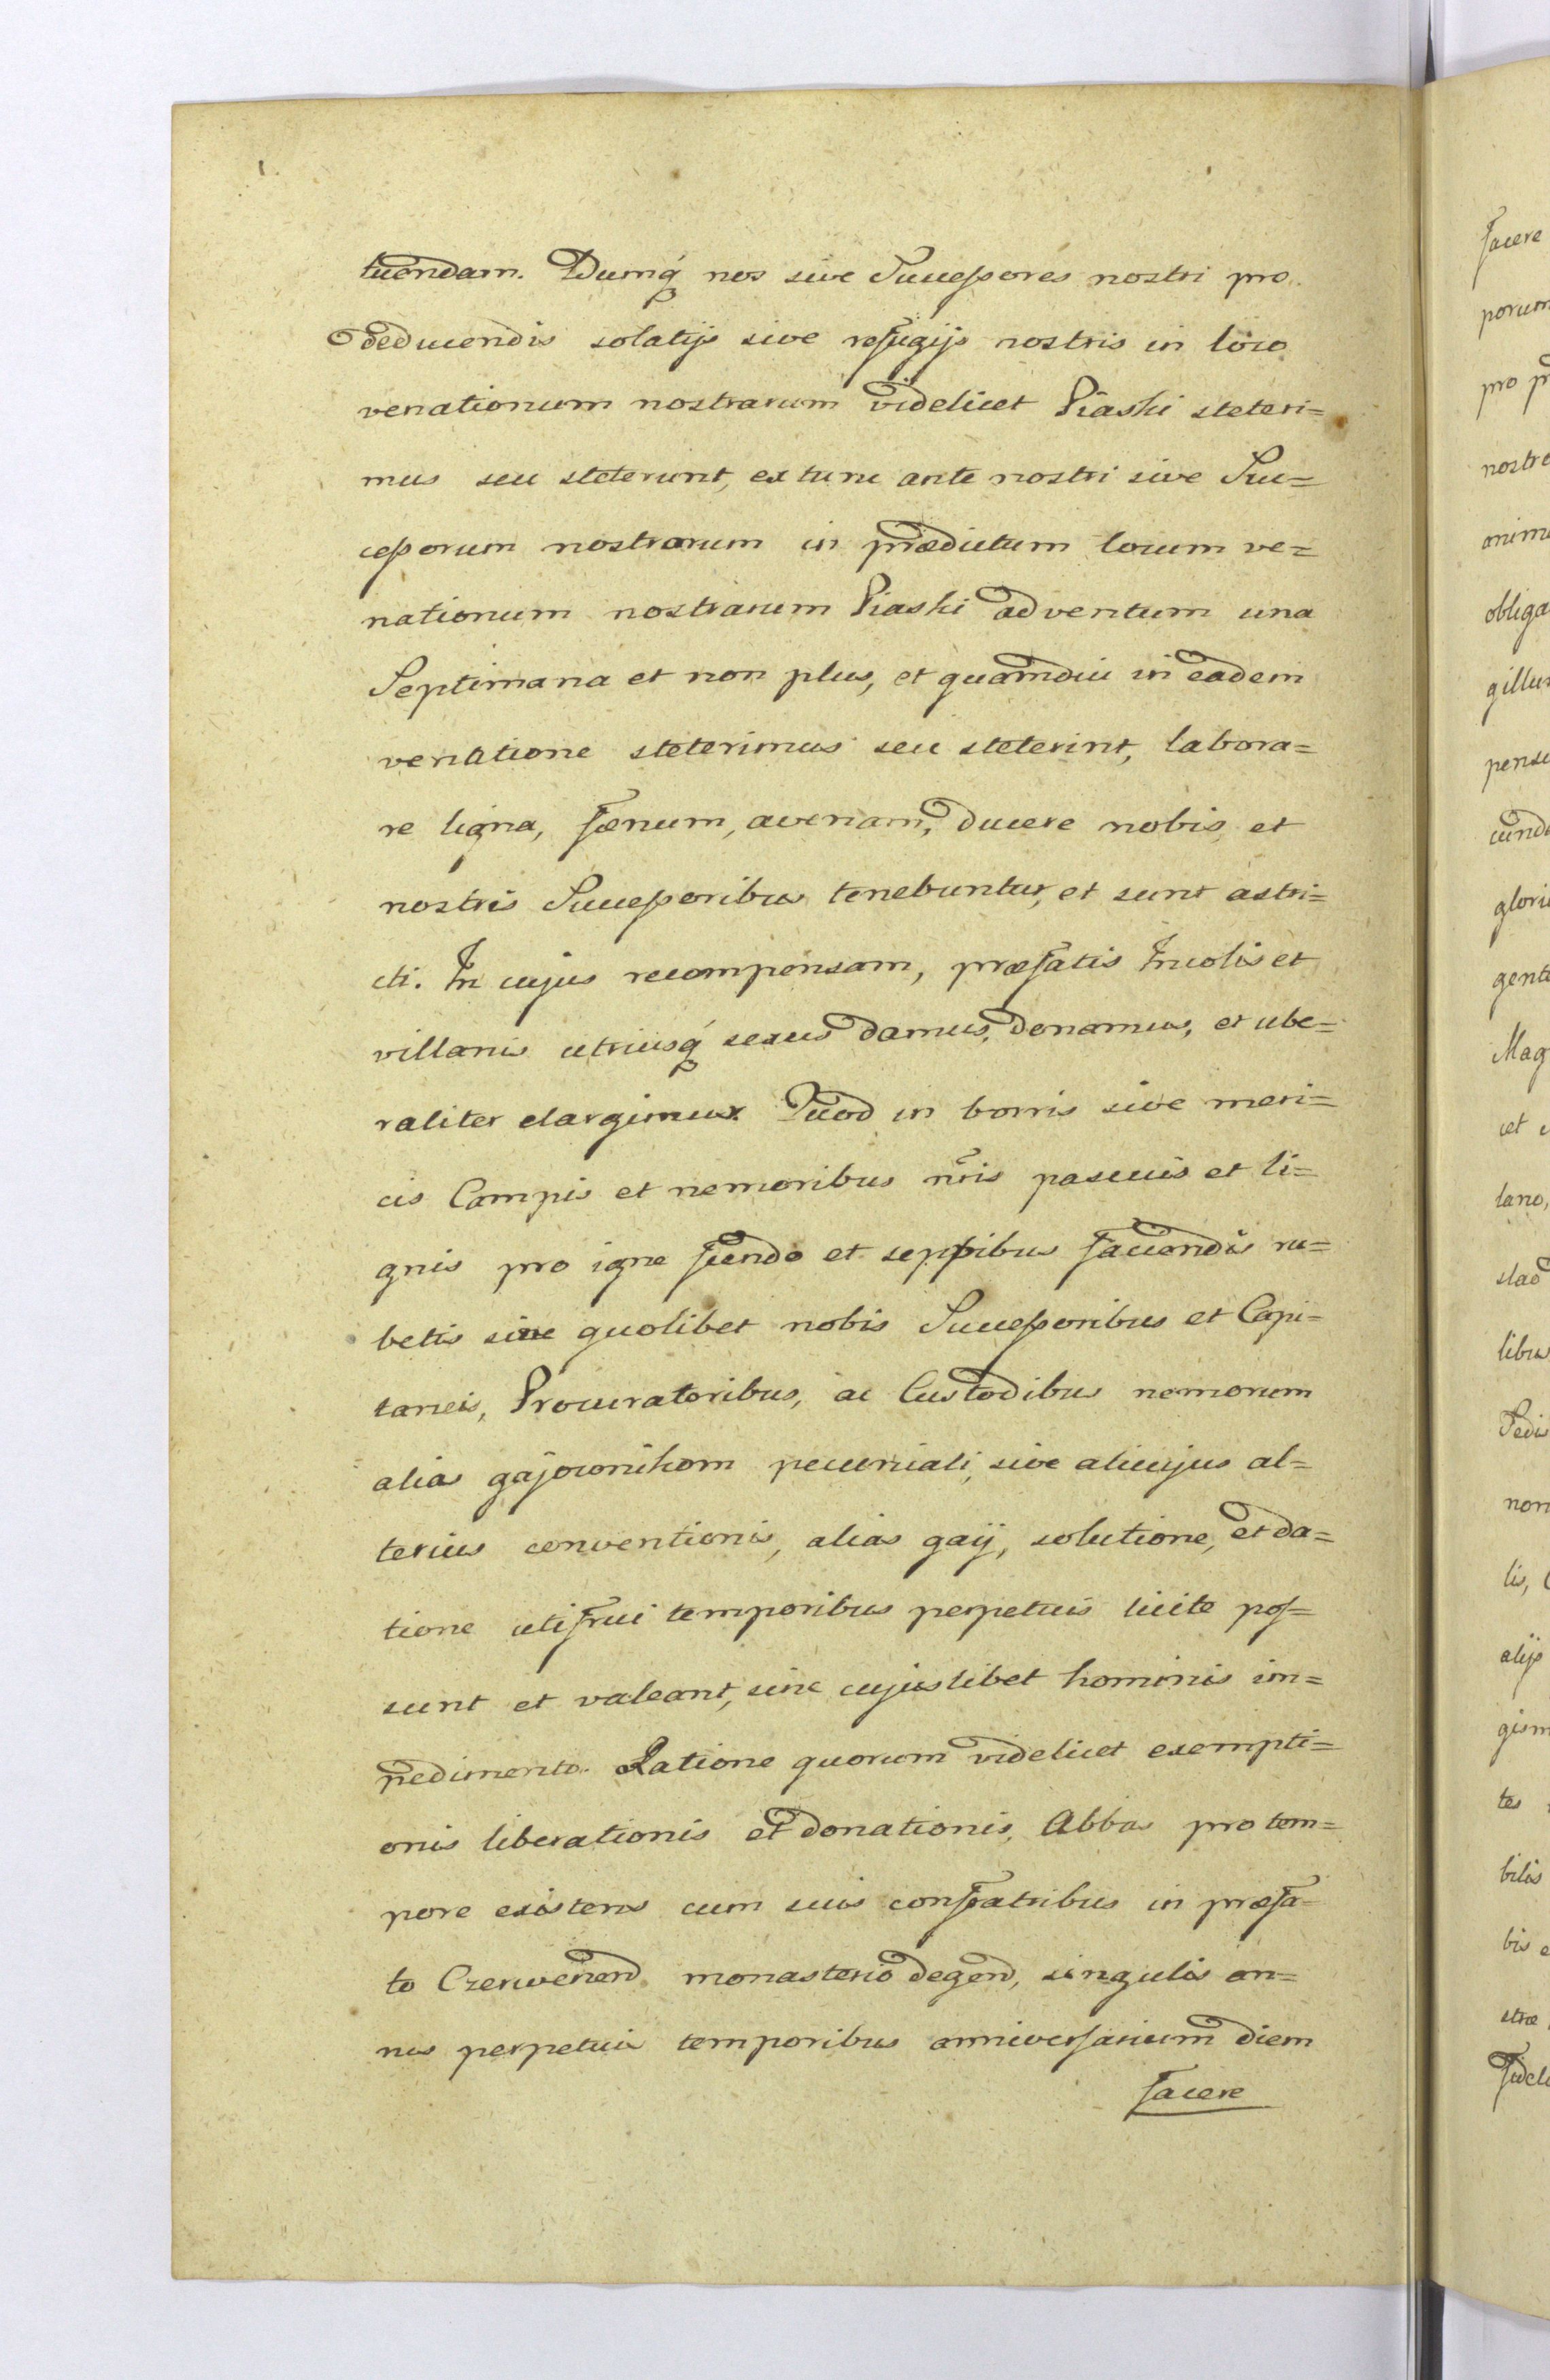 tuendam. Dumq́ nos sive Successores nostri pro
deducendis solatijs sive refugijs nostris in loco
venationum nostrarum videlicet Piaski steteri=
mus seu steterunt, ex tunc ante nostri sive Suc=
cessorum nostrorum in prædictum locum ve=
nationum nostrarum Piaski adventum una
Septimana et non plus, et quamdiu in eadem
venatione steterimus seu steterint, labora=
re ligna, fœnum, avenam, ducere nobis, et
nostris Successoribus tenebuntur, et sunt astri=
cti. In cujus recompensam, præfatis Incolis et
villanis utriusq́ sexus damus, donamus, et ube=
raliter elargimur. Quod in borris sive meri=
cis Campis et nemoribus nr̃is pascuis et li=
gnis pro igne fiendo et seppibus faciendis ru=
betis sine quolibet nobis Successoribus et Capi=
taneis, Procuratoribus, ac Custodibus nemorum
alias gajownikom pecuniali, sive alicujus al=
terius conventionis, alias gaij, solutione, et da=
tione utifrui temporibus perpetuis licite pos=
sunt et valeant, sine cujuslibet hominis im=
pedimento. Ratione quorum videlicet exempti=
onis liberationis et donationis, Abbas pro tem=
pore existens cum suis confratribus in præfa=
to Czerwenend monasterio degend, singulis an=
nis perpetuis temporibus anniversarium diem
facere
facere
porum
pro
nostro
obliga
cund
glori
gente
Mag
lano,
libus
non
lis,
alijs
tes
bilis
bis
stræ